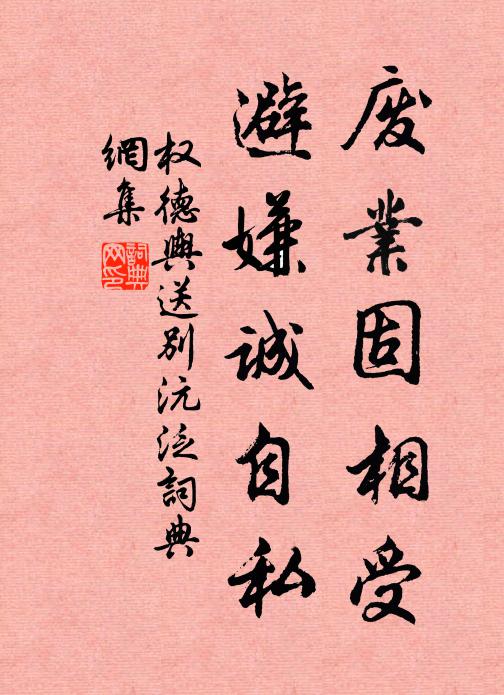 废業固相受
避嫌誠自私
权德與送别沅泛詞典
網集
詞典
网印